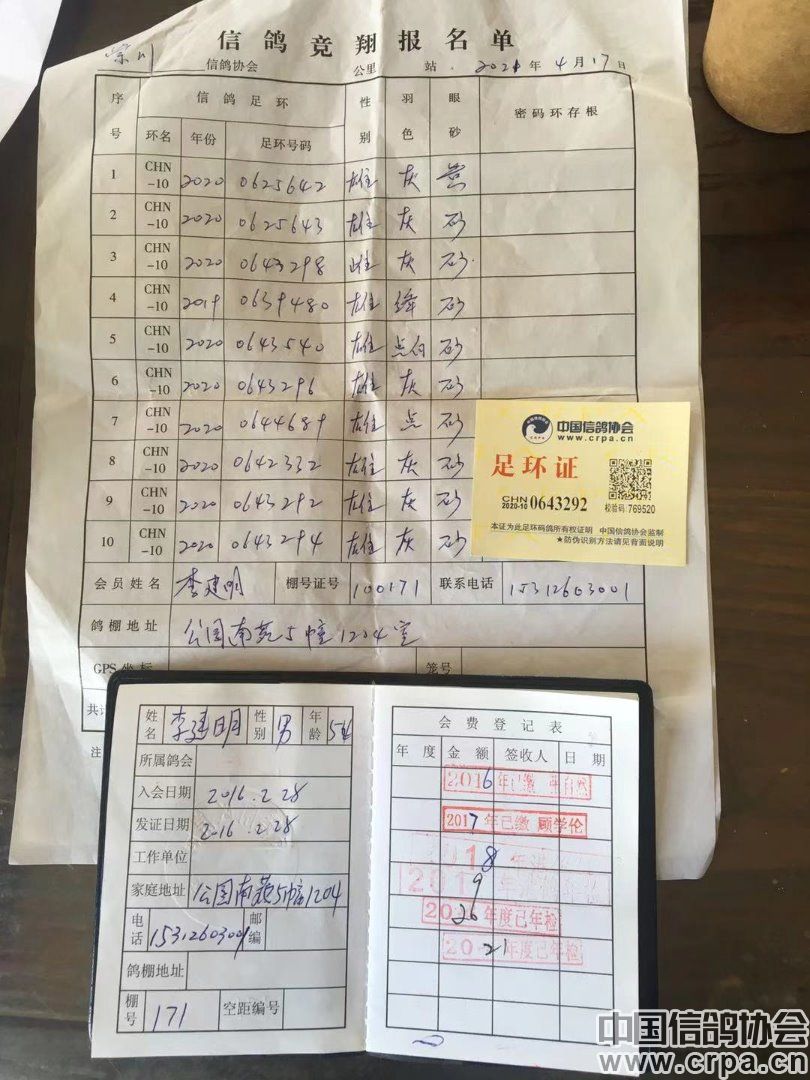 信鸽竞翔报名单
崇川 信鸽协会 公里 站 2021年4月17日
序号 信鸽足环 性别 羽色 眼砂 密码环存根
环名 年份 足环号码
1 CHN-10 2020 0625642 雄 灰 黄
2 CHN-10 2020 0625643 雄 灰 砂
3 CHN-10 2020 0643298 雌 灰 砂
4 CHN-10 2019 0639480 雄 绛 砂
5 CHN-10 2020 0643540 雄 点白 砂
6 CHN-10 2020 0643296 雄 灰 砂
7 CHN-10 2020 0644689 雄 点 砂
8 CHN-10 2020 0642332 雄 灰 砂
9 CHN-10 2020 0643292 雄 灰 砂
10 CHN-10 2020 0643294 雄 灰 砂
会员姓名 李建明 棚号证号 100171 联系电话 15312603001
鸽棚地址 公园南苑5幢1204室
GPS坐标 笼号
共计
注
中国信鸽协会
CRPA
www.crpa.cn
足环证
CHN 2020-10 0643292
校验码:769520
本证为此足环码鸽所有权证明 中国信鸽协会监制
★防伪识别方法请见背面说明
姓名 李建明 性别 男 年龄
所属鸽会
入会日期 2016.2.28
发证日期 2016.2.28
工作单位
家庭地址 公园南苑5幢1204
电话 15312603001 邮编
鸽棚地址
棚号 171 空距编号
会费登记表
年度 金额 签收人 日期
2016年已缴
2017年已缴 顾学伦
2018年
2019年
2020年度已年检
2021年度已年检
中国信鸽协会
www.crpa.cn